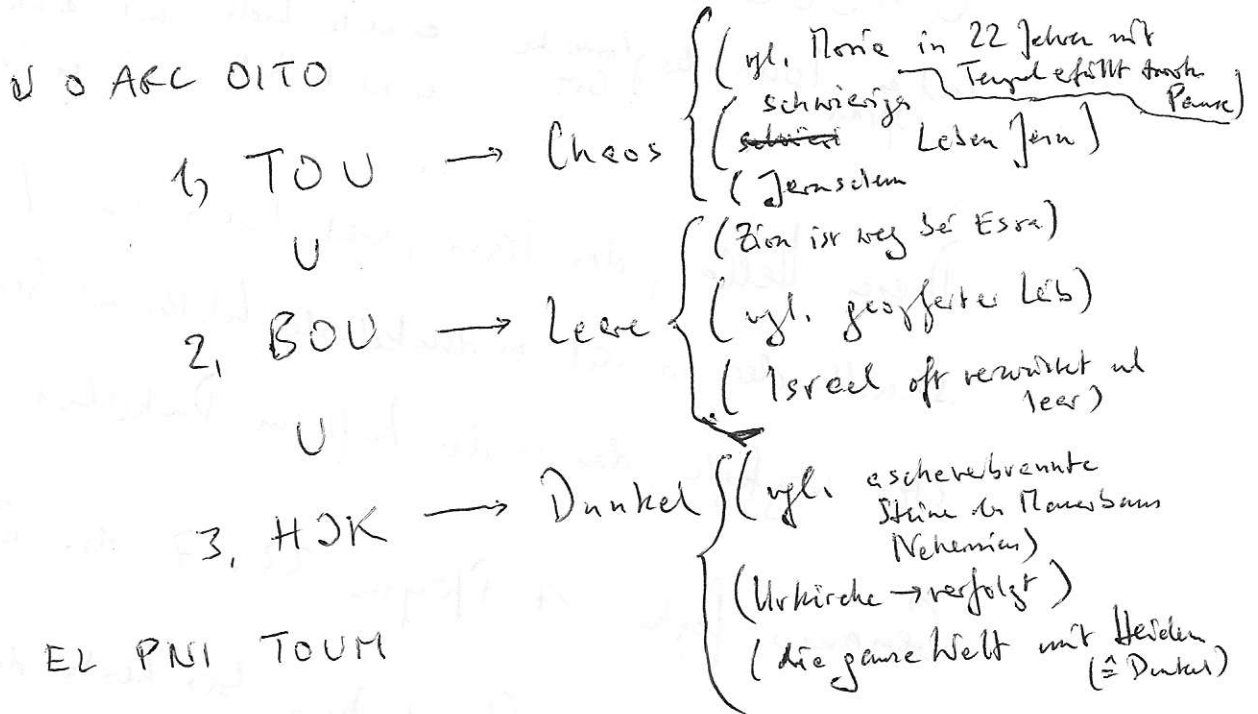 U O ARC OITO
1, TOU → Chaos
(vgl. in 22 Jahren mit
Tempel efüllt trotz
Pause)
schwierige
Leben Jesu)
(Jerusalem
U
2, BOU → Leere
(Zion ist weg bei Esra)
(vgl. geopferter Leib)
(Israel oft verwüstet und
leer)
U
3, HJK → Dunkel
(vgl. ascheverbrannte
Steine des Mauerbaus
Nehemias)
(Urkirche → verfolgt)
(die ganze Welt mit Heiden
(≙ Dunkel)
EL PNI TOUM